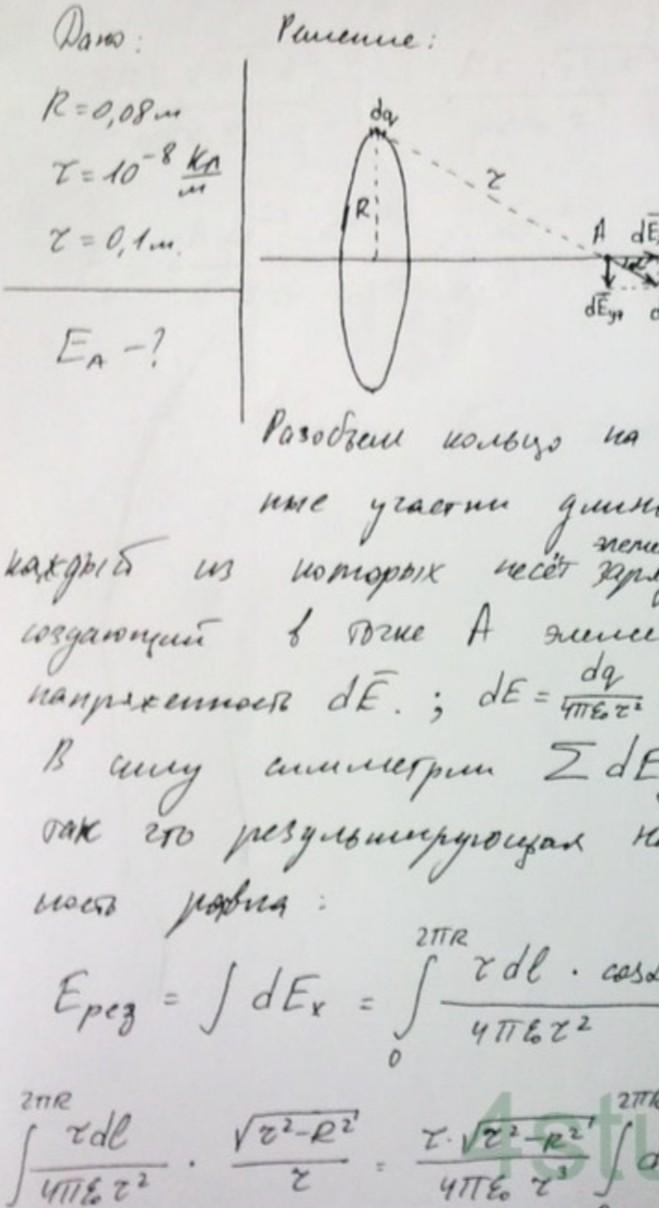 Дано: Решение:
R = 0,08 м
τ = 10⁻⁸ Кл/м
r = 0,1 м.
E_A - ?
dq
R
r
A
dE
dE_y
Разобьем кольцо на
ные участки длин
элеме
каждый из которых несёт заря
создающий в точке A элеме
напряженность dE̅. ; dE = dq/(4πε₀r²)
В силу симметрии ∑ dE
так что результирующая на
ность равна :
E_рез = ∫ dE_x = ∫₀^(2πR) τ dl · cosα/(4πε₀r²)
∫^(2πR) τdl/(4πε₀r²) · √(r²-R²)/r = τ·√(r²-R²)/(4πε₀ r³) ∫^(2πR) d
4stu